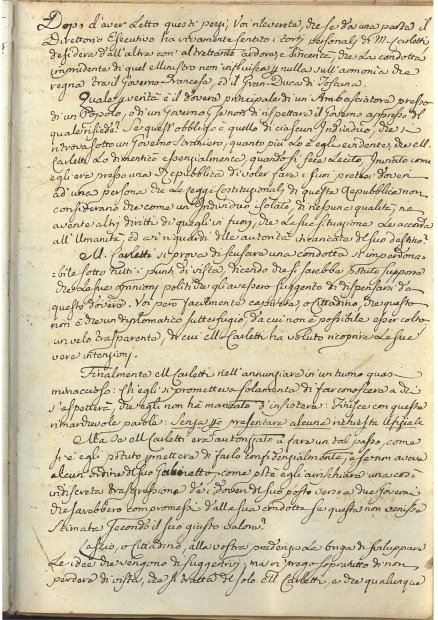 Dopo d'aver letto questi pezzi, Voi rileverete, che se da una parte il
Direttorio Esecutivo ha vivamente sentito i torti personali di M. Carletti
desidera dall'altra con altrettanto ardore, e sincerità, che la condotta
imprudente di quel Ministro non influisca per nulla sull'armonia che
regna tra il Governo Francese, ed il Gran Duca di Toscana.
Quale in verità è il dovere principale di un Ambasciatore presso
di un Popolo, o di un Governo, se non di rispettare il Governo appresso del
quale risiede? Se quest'obbligo è quello di ciascun Individuo, che si
ritrova sotto un Governo straniero, quanto più lo è egli evidente, che M.
Carletti lo dimenticò essenzialmente, quando si fece lecito, Inviato come
egli era presso una Repubblica di voler fare i suoi pretesi doveri
ad una persona che le Leggi Costituzionali di questa Repubblica non
considerano che come un Individuo isolato, di nessuna qualità, ne
avente altri diritti di quegli in fuori, che la sua situazione le accorda
all'Umanità, ed ai riguardi delle autorità incaricate del suo destino?
M. Carletti si prova di scusare una condotta sì imperdona-
bile sotto tutti i punti di vista, dicendo che si sarebbe potuto supporre
che le sue opinioni politiche gli avessero suggerito di dispensarsi da
questo dovere. Voi però facilmente capirete, o Cittadino, che questo
non è che un diplomatico sutterfugio, da cui non è possibile esser colto
un velo trasparente, di cui M. Carletti ha voluto ricoprire le sue
vere intenzioni.
Finalmente M. Carletti nell'annunziare in un tuono quasi
minaccioso: ch'egli si prometteva solamente di far conoscere a chi
s'aspetterà, che egli non ha mancato d'insistere: finisce con queste
rimarchevoli parole: senza però presentare alcuna richiesta ufficiale
Ma se M. Carletti era autorizzato a fare un tal passo, come
s'è egli potuto permettere di farlo confidenzialmente, e se non aveva
alcun ordine del suo Gabinetto, come potè egli arrischiare una così
indiscreta trasgressione dei doveri del suo posto verso a due Governi
che sarebbero compromessi d'alla sua condotta se questa non venisse
stimata secondo il suo giusto valore?
Lascio, o Cittadino, alla vostra prudenza la briga di sviluppare
le idee che vengono di suggerirvi; ma vi prego sopratutto di non
perdere di vista, che si tratta del solo M. Carletti, e che qualunque